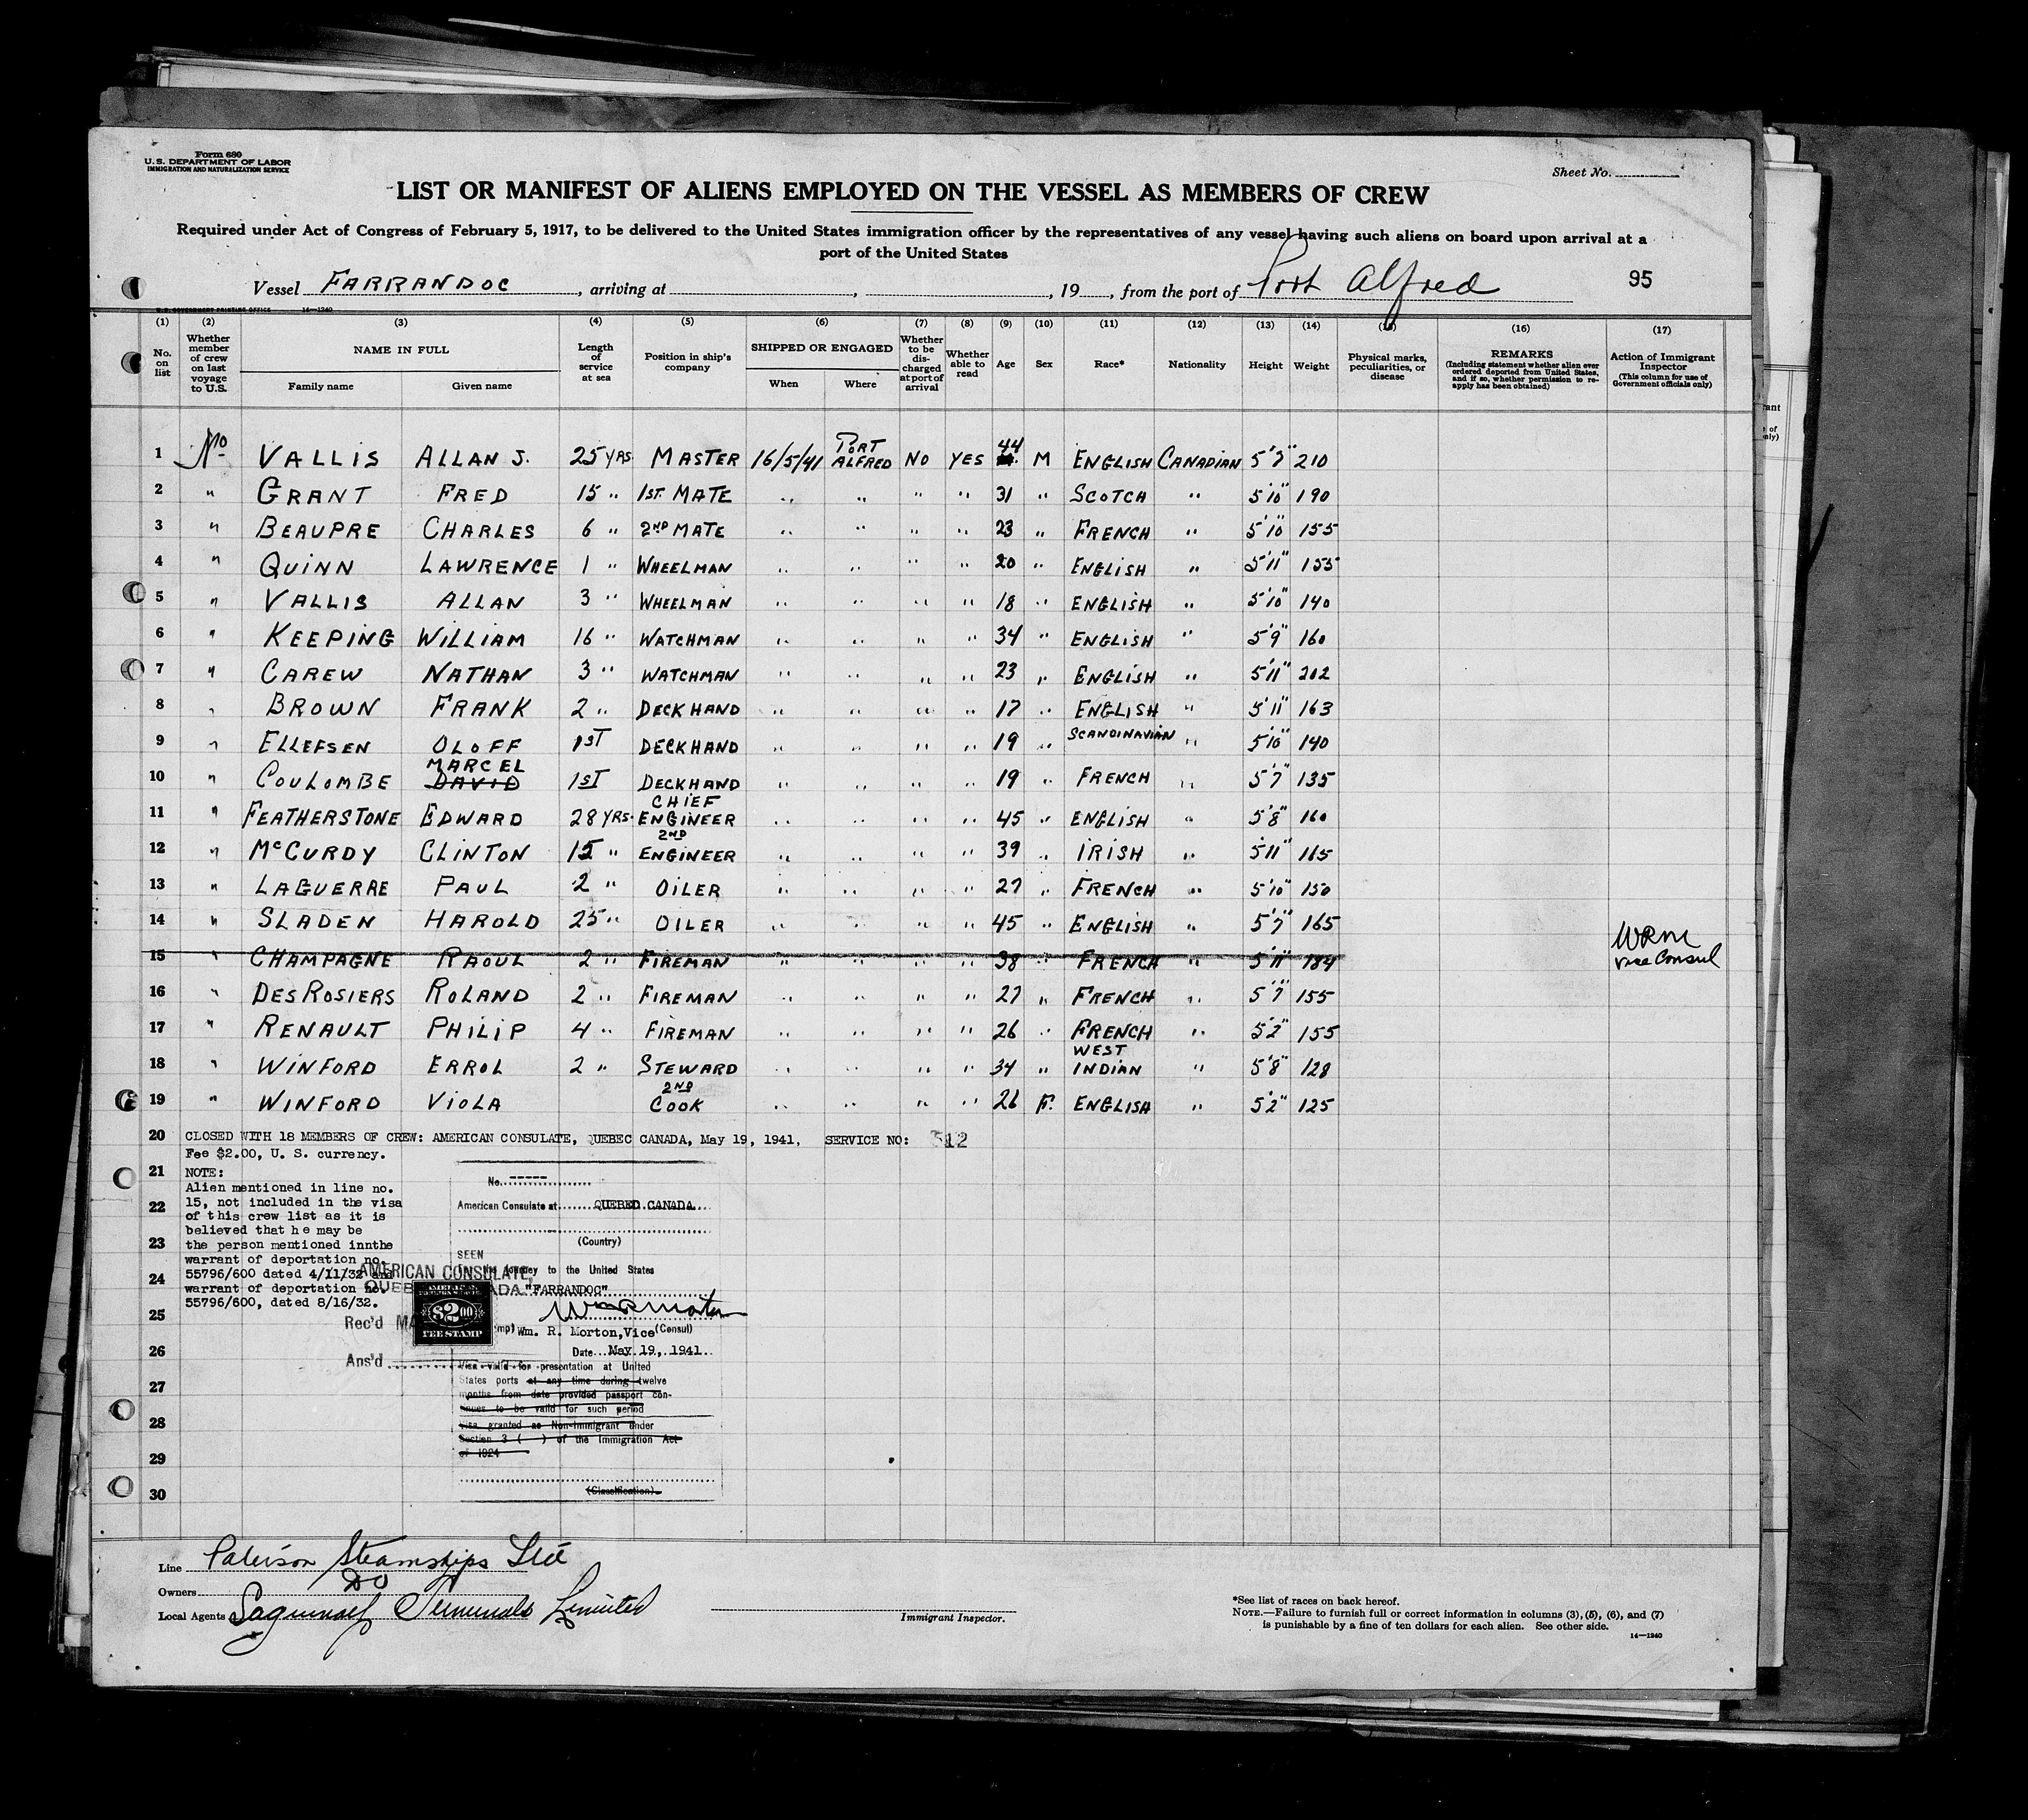 Form 680
U.S. DEPARTMENT OF LABOR
IMMIGRATION AND NATURALIZATION SERVICE
Sheet No.
LIST OR MANIFEST OF ALIENS EMPLOYED ON THE VESSEL AS MEMBERS OF CREW
Required under Act of Congress of February 5, 1917, to be delivered to the United States immigration officer by the representatives of any vessel having such aliens on board upon arrival at a
port of the United States
Vessel FARRANDOC, arriving at , , 19 , from the port of Port Alfred 95
U.S. GOVERNMENT PRINTING OFFICE 14—1240
(1) (2) (3) (4) (5) (6) (7) (8) (9) (10) (11) (12) (13) (14) (15) (16) (17)
No. on list
Whether member of crew on last voyage to U.S.
NAME IN FULL
Family name Given name
Length of service at sea
Position in ship's company
SHIPPED OR ENGAGED
When Where
Whether to be discharged at port of arrival
Whether able to read
Age Sex Race* Nationality Height Weight
Physical marks, peculiarities, or disease
REMARKS
(Including statement whether alien ever ordered deported from United States, and if so, whether permission to reapply has been obtained)
Action of Immigrant Inspector
(This column for use of Government officials only)
1 No VALLIS ALLAN J. 25 YRS. MASTER 16/5/41 PORT ALFRED NO YES 44 M ENGLISH CANADIAN 5'7" 210
2 " GRANT FRED 15 " 1ST. MATE " " " " 31 " SCOTCH " 5'10" 190
3 " BEAUPRE CHARLES 6 " 2ND MATE " " " " 23 " FRENCH " 5'10" 155
4 " QUINN LAWRENCE 1 " WHEELMAN " " " " 20 " ENGLISH " 5'11" 155
5 " VALLIS ALLAN 3 " WHEELMAN " " " " 18 " ENGLISH " 5'10" 140
6 " KEEPING WILLIAM 16 " WATCHMAN " " " " 34 " ENGLISH " 5'9" 160
7 " CAREW NATHAN 3 " WATCHMAN " " " " 23 " ENGLISH " 5'11" 202
8 " BROWN FRANK 2 " DECKHAND " " " " 17 " ENGLISH " 5'11" 163
9 " ELLEFSEN OLOFF 1ST DECKHAND " " " " 19 " SCANDINAVIAN " 5'10" 140
10 " COULOMBE MARCEL DAVID 1ST DECKHAND " " " " 19 " FRENCH " 5'7" 135
11 " FEATHERSTONE EDWARD 28 YRS. CHIEF ENGINEER " " " " 45 " ENGLISH " 5'8" 160
12 " McCURDY CLINTON 15 " 2ND ENGINEER " " " " 39 " IRISH " 5'11" 165
13 " LAGUERRE PAUL 2 " OILER " " " " 27 " FRENCH " 5'10" 150
14 " SLADEN HAROLD 25 " OILER " " " " 45 " ENGLISH " 5'7" 165
15 " CHAMPAGNE RAOUL 2 " FIREMAN " " " " 38 " FRENCH " 5'11" 184 WRM Vice Consul
16 " DESROSIERS ROLAND 2 " FIREMAN " " " " 27 " FRENCH " 5'7" 155
17 " RENAULT PHILIP 4 " FIREMAN " " " " 26 " FRENCH " 5'2" 155
18 " WINFORD ERROL 2 " STEWARD " " " " 34 " WEST INDIAN " 5'8" 128
19 " WINFORD VIOLA 2ND COOK " " " " 26 F. ENGLISH " 5'2" 125
20 CLOSED WITH 18 MEMBERS OF CREW: AMERICAN CONSULATE, QUEBEC CANADA, May 19, 1941, SERVICE NO: 312
Fee $2.00, U. S. currency.
21 NOTE:
Alien mentioned in line no.
22 15, not included in the visa
of this crew list as it is
believed that he may be
23 the person mentioned innthe
warrant of deportation no.
24 55796/600 dated 4/11/32 and
warrant of deportation no.
25 55796/600, dated 8/16/32.
26
27
28
29
30
No. -----
American Consulate at QUEBEC CANADA
(Country)
SEEN
For the journey to the United States
"FARRANDOC"
AMERICAN CONSULATE,
Rec'd
Ans'd
$2.00
FEE STAMP
Wm R Morton
Wm. R. Morton, Vice (Consul)
Date May 19, 1941
Visa valid for presentation at United
States ports at any time during twelve
months from date provided passport con-
tinues to be valid for such period
Visa granted as Non-Immigrant under
Section 3 ( ) of the Immigration Act
of 1924
(Classification)
Line Paterson Steamships Ltd
Owners DO
Local Agents Saguenay Terminals Limited
Immigrant Inspector.
*See list of races on back hereof.
NOTE.—Failure to furnish full or correct information in columns (3), (5), (6), and (7)
is punishable by a fine of ten dollars for each alien. See other side.
14—1240